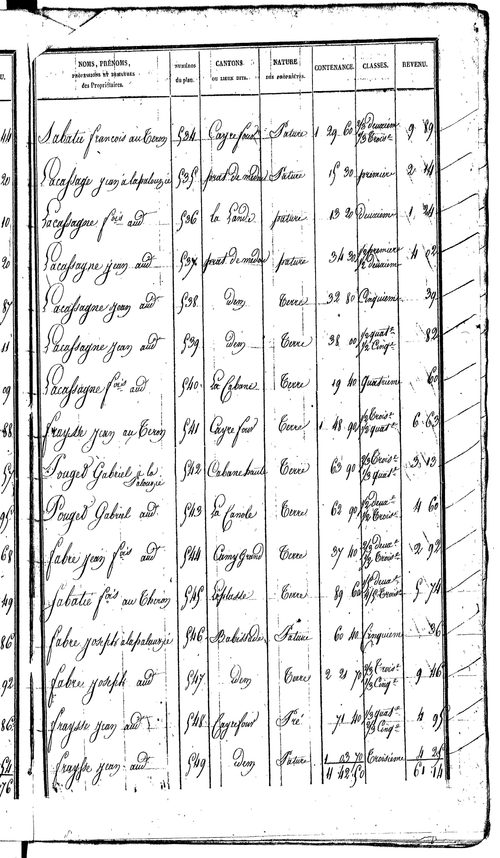 NOMS, PRÉNOMS, PROFESSIONS ET DEMEURES des Propriétaires. NUMÉROS du plan. CANTONS OU LIEUX DITS. NATURE DES PROPRIÉTÉS. CONTENANCE. CLASSES. REVENU.
44 Sabatié françois au Teron 534 Cayrefour Pature 1 29 60 deuxieme 9 89
20 Lacassagne jean a lapalouzie 535 prat de Pature 15 30 premiere 2 14
10 Lacassagne fois aud 536 la Lande pature 13 20 Deuxieme 1 24
20 Lacassagne jean aud 537 prat de pature 34 30 1/2 premiere 1/2 deuxieme 4 02
87 Lacassagne jean aud 538 idem Terre 32 80 Cinquieme 39
11 Lacassagne jean aud 539 idem Terre 38 00 1/2 quat. 1/2 Cinq. 82
09 Lacassagne fois aud 540 la Cabane Terre 19 40 quatrieme 60
88 fraysse jean au Teron 541 Cayrefour Terre 1 48 90 1/2 Trois. 1/2 quat. 6 63
57 Pouget Gabriel a la Palouzie 542 Cabane haute Terre 63 90 Trois. quat. 3 13
95 Pouget Gabriel aud 543 la Canole Terre 62 90 1/2 deux. 1/2 Trois. 4 60
68 fabre jean fois aud 544 Camy Grand Terre 37 40 deux. Trois. 2 92
49 Sabatié fois au Theron 545 Terre 89 60 deux. Trois. 5 74
86 fabre joseph a lapalouzie 546 Pature 60 40 Cinquieme 36
92 fabre joseph aud 547 idem Terre 2 21 70 Trois. Cinq. 9 46
86 fraysse jean aud 548 Cayrefour Pré 71 40 quat. Cinq. 4 95
54 fraysse jean aud 549 idem Pature 1 03 70 Troisieme 4 25
76 4 42 50 61 14